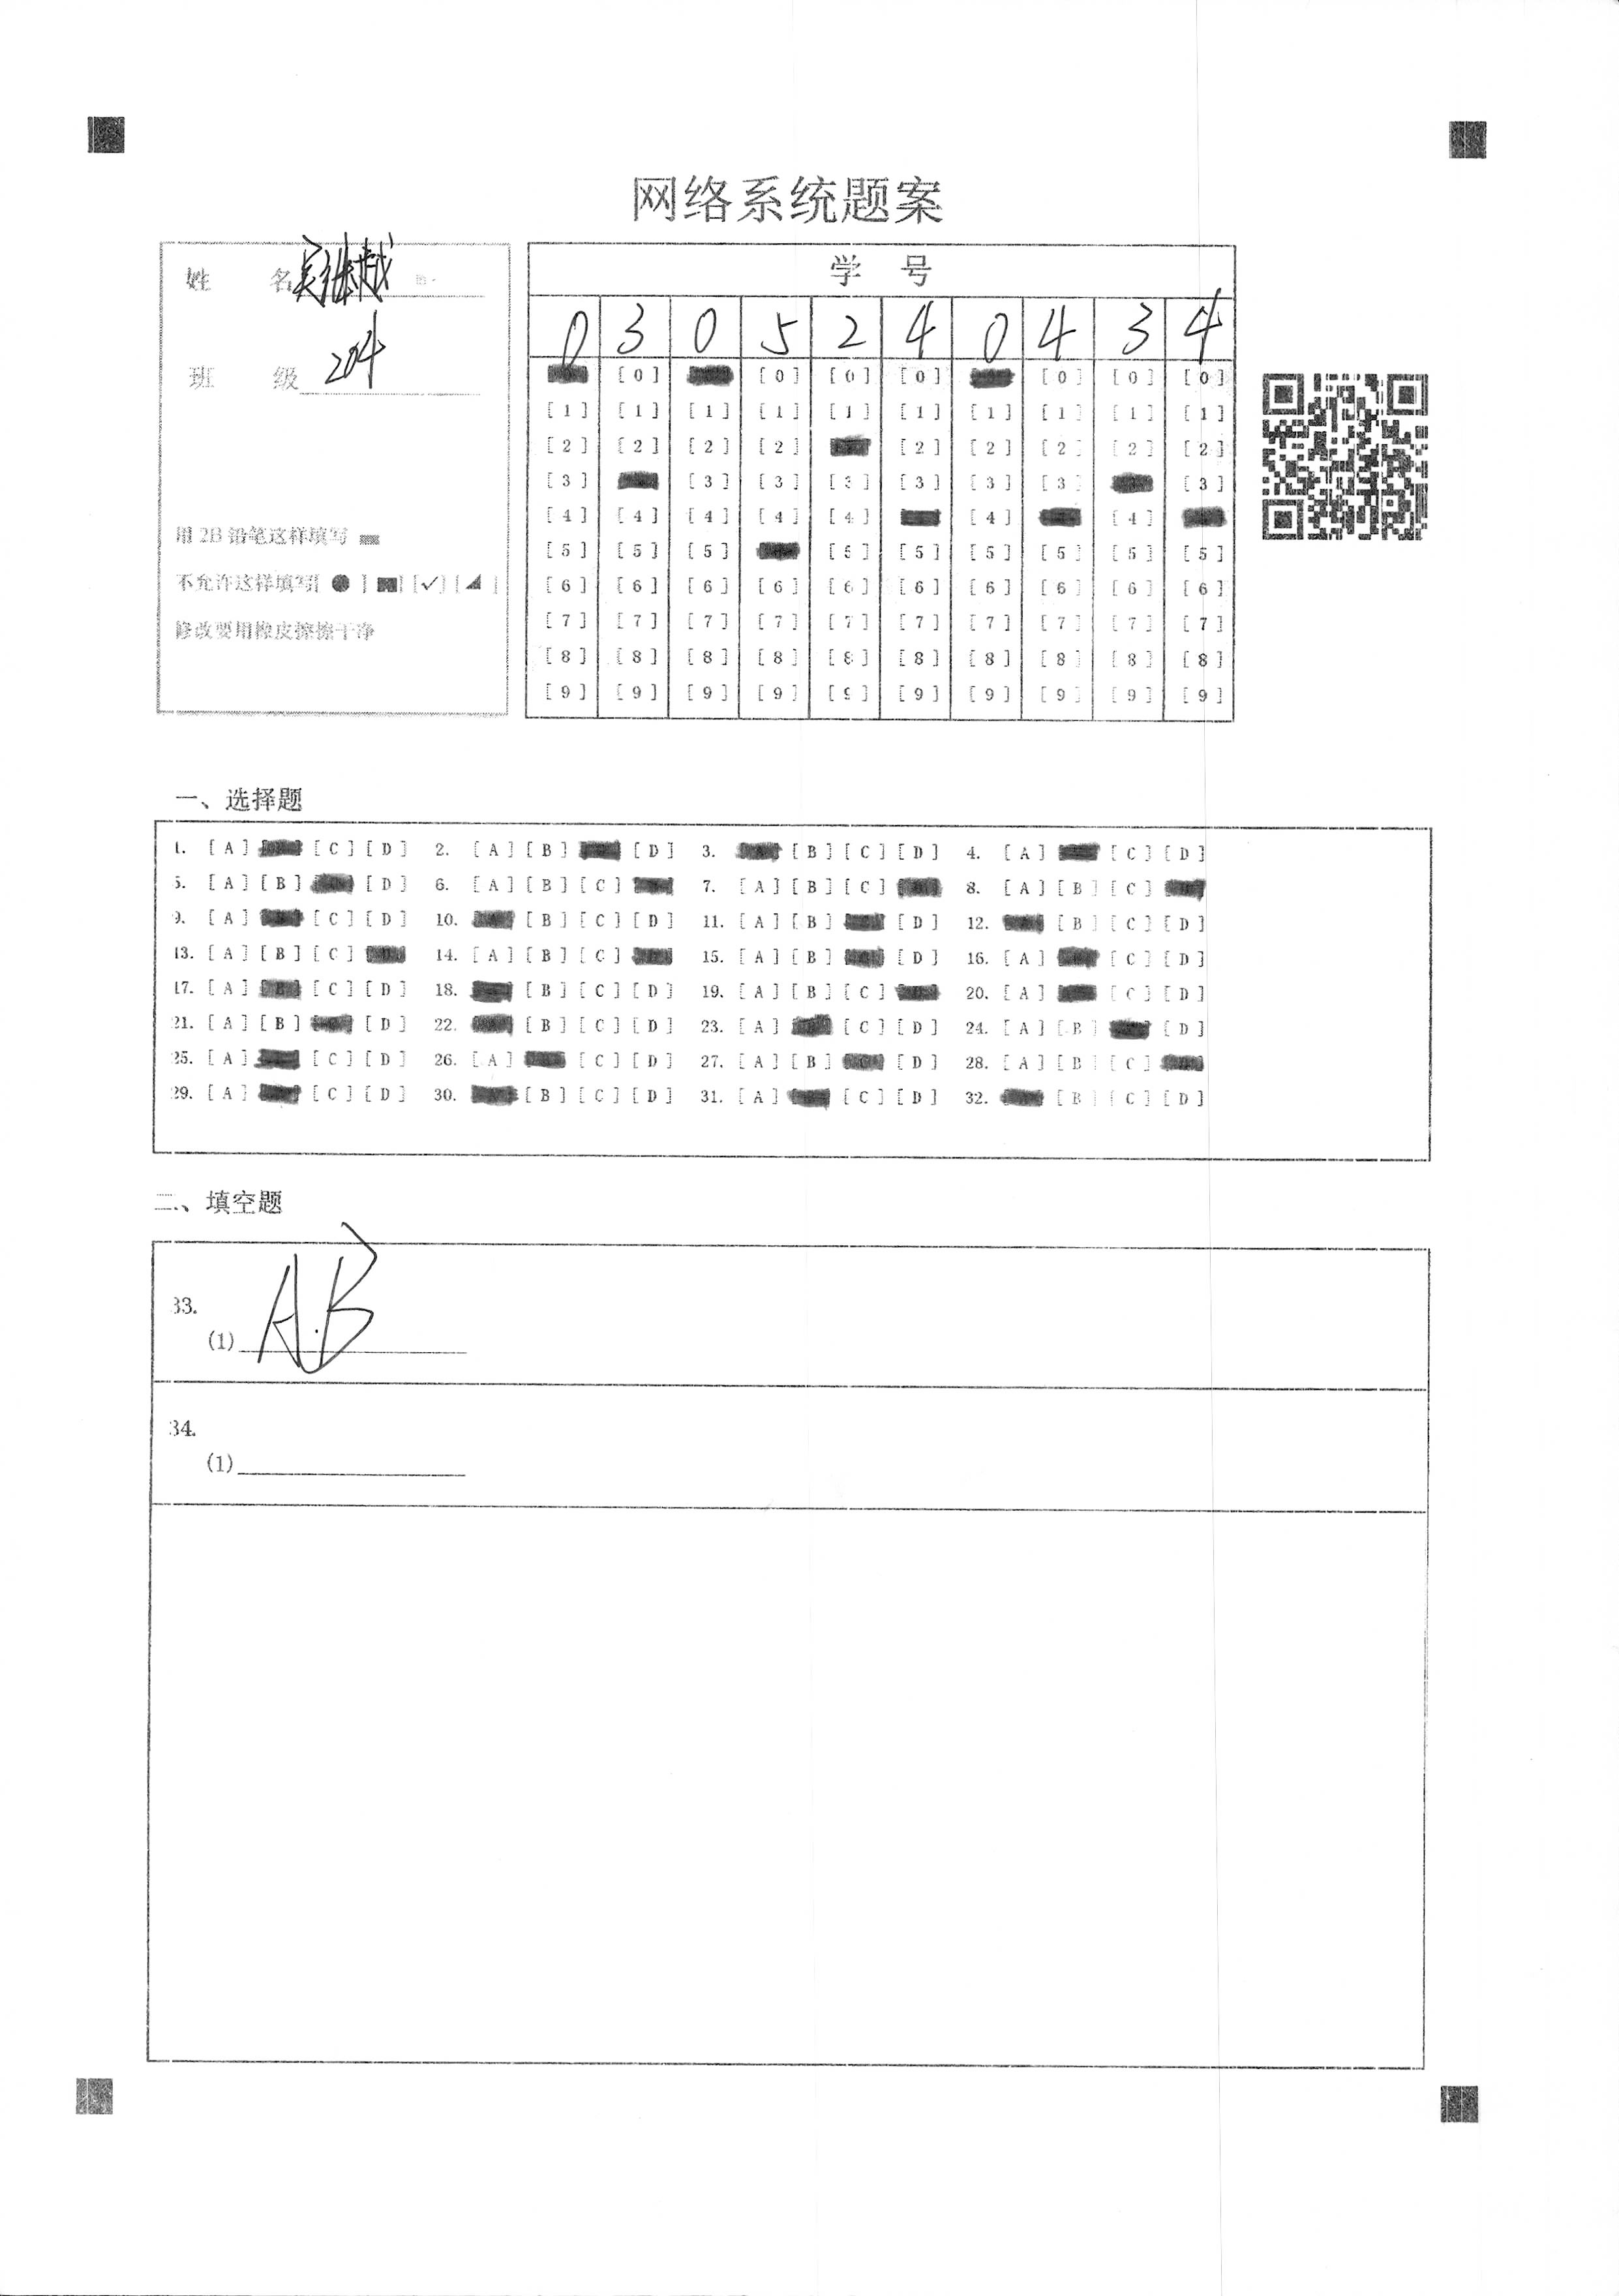 网络系统题案
姓 名 吴继越
班 级 204
用 2B 铅笔这样填写
不允许这样填写[ ● ] [■] [✓] [◢ ]
修改要用橡皮擦擦干净
学 号
0 3 0 5 2 4 0 4 3 4
[0] [0] [0] [0] [0] [0] [0]
[1] [1] [1] [1] [1] [1] [1] [1] [1] [1]
[2] [2] [2] [2] [2] [2] [2] [2] [2]
[3] [3] [3] [3] [3] [3] [3] [3]
[4] [4] [4] [4] [4] [4] [4]
[5] [5] [5] [5] [5] [5] [5] [5] [5]
[6] [6] [6] [6] [6] [6] [6] [6] [6] [6]
[7] [7] [7] [7] [7] [7] [7] [7] [7] [7]
[8] [8] [8] [8] [8] [8] [8] [8] [8] [8]
[9] [9] [9] [9] [9] [9] [9] [9] [9] [9]
一、选择题
1. [A] [C] [D] 2. [A] [B] [D] 3. [B] [C] [D] 4. [A] [C] [D]
5. [A] [B] [D] 6. [A] [B] [C] 7. [A] [B] [C] 8. [A] [B] [C]
9. [A] [C] [D] 10. [B] [C] [D] 11. [A] [B] [D] 12. [B] [C] [D]
13. [A] [B] [C] 14. [A] [B] [C] 15. [A] [B] [D] 16. [A] [C] [D]
17. [A] [C] [D] 18. [B] [C] [D] 19. [A] [B] [C] 20. [A] [C] [D]
21. [A] [B] [D] 22. [B] [C] [D] 23. [A] [C] [D] 24. [A] [B] [D]
25. [A] [C] [D] 26. [A] [C] [D] 27. [A] [B] [D] 28. [A] [B] [C]
29. [A] [C] [D] 30. [B] [C] [D] 31. [A] [C] [D] 32. [B] [C] [D]
二、填空题
33.
(1) A.B
34.
(1)